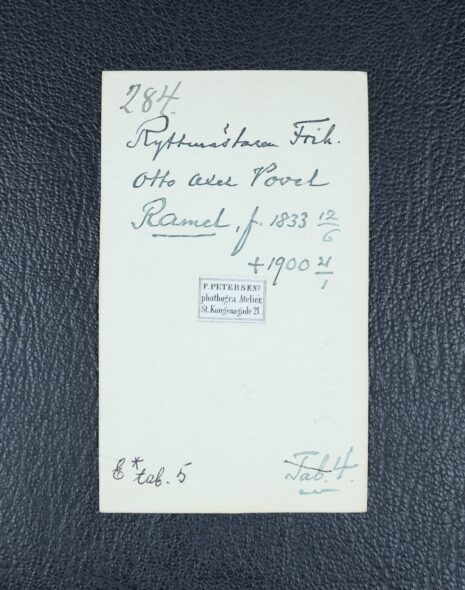 284.
Ryttmästaren Frih.
Otto Axel Povel
Ramel, f. 1833 12/6
+ 1900 21/1
F. PETERSENS
phothogra. Atelier
St. Kongensgade 21.
E* tab. 5
Tab. 4.